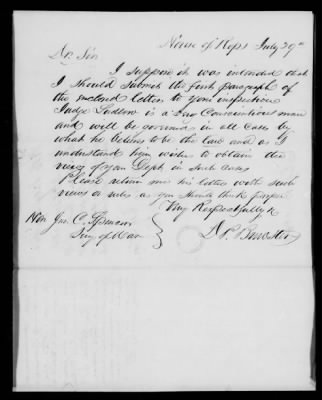 House of Reps July 29th
Dr Sir
I suppose it was intended that
I should submit the first paragraph of
the enclosed letter to your inspection
Judge Ludlow is a very Conscientious man
and will be governed in all cases by
what he believes to be the law and as I
understand him wishes to obtain the
views of your Dept in such cases
Please return me his letter with such
views or rules as you think proper
Very Respectfully &
Hon Jno. C. Spencer
Secy of War